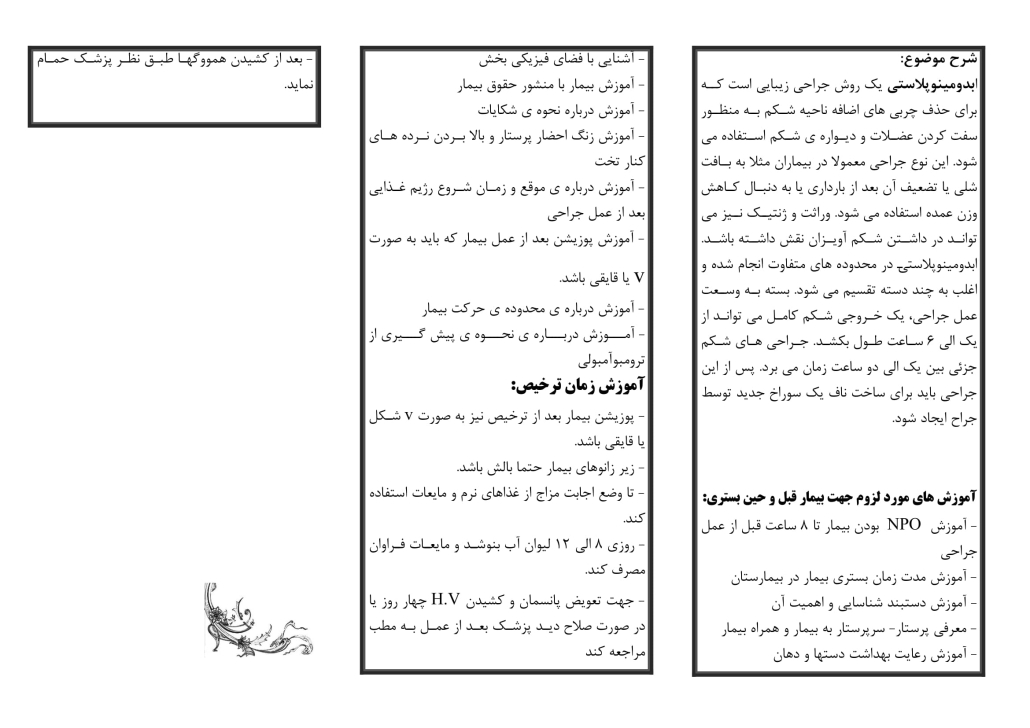 شرح موضوع:
ابدومینوپلاستی یک روش جراحی زیبایی است که
برای حذف چربی های اضافه ناحیه شکم به منظور
سفت کردن عضلات و دیواره ی شکم استفاده می
شود. این نوع جراحی معمولا در بیماران مثلا به بافت
شلی یا تضعیف آن بعد از بارداری یا به دنبال کاهش
وزن عمده استفاده می شود. وراثت و ژنتیک نیز می
تواند در داشتن شکم آویزان نقش داشته باشد.
ابدومینوپلاستی در محدوده های متفاوت انجام شده و
اغلب به چند دسته تقسیم می شود. بسته به وسعت
عمل جراحی، یک خروجی شکم کامل می تواند از
یک الی ۶ ساعت طول بکشد. جراحی های شکم
جزئی بین یک الی دو ساعت زمان می برد. پس از این
جراحی باید برای ساخت ناف یک سوراخ جدید توسط
جراح ایجاد شود.
آموزش های مورد لزوم جهت بیمار قبل و حین بستری:
- آموزش NPO بودن بیمار تا ۸ ساعت قبل از عمل
جراحی
- آموزش مدت زمان بستری بیمار در بیمارستان
- آموزش دستبند شناسایی و اهمیت آن
- معرفی پرستار- سرپرستار به بیمار و همراه بیمار
- آموزش رعایت بهداشت دستها و دهان
- آشنایی با فضای فیزیکی بخش
- آموزش بیمار با منشور حقوق بیمار
- آموزش درباره نحوه ی شکایات
- آموزش زنگ احضار پرستار و بالا بردن نرده های
کنار تخت
- آموزش درباره ی موقع و زمان شروع رژیم غذایی
بعد از عمل جراحی
- آموزش پوزیشن بعد از عمل بیمار که باید به صورت
V یا قایقی باشد.
- آموزش درباره ی محدوده ی حرکت بیمار
- آموزش درباره ی نحوه ی پیش گیری از
ترومبوآمبولی
آموزش زمان ترخیص:
- پوزیشن بیمار بعد از ترخیص نیز به صورت v شکل
یا قایقی باشد.
- زیر زانوهای بیمار حتما بالش باشد.
- تا وضع اجابت مزاج از غذاهای نرم و مایعات استفاده
کند.
- روزی ۸ الی ۱۲ لیوان آب بنوشد و مایعات فراوان
مصرف کند.
- جهت تعویض پانسمان و کشیدن H.V چهار روز یا
در صورت صلاح دید پزشک بعد از عمل به مطب
مراجعه کند
- بعد از کشیدن همووگها طبق نظر پزشک حمام
نماید.